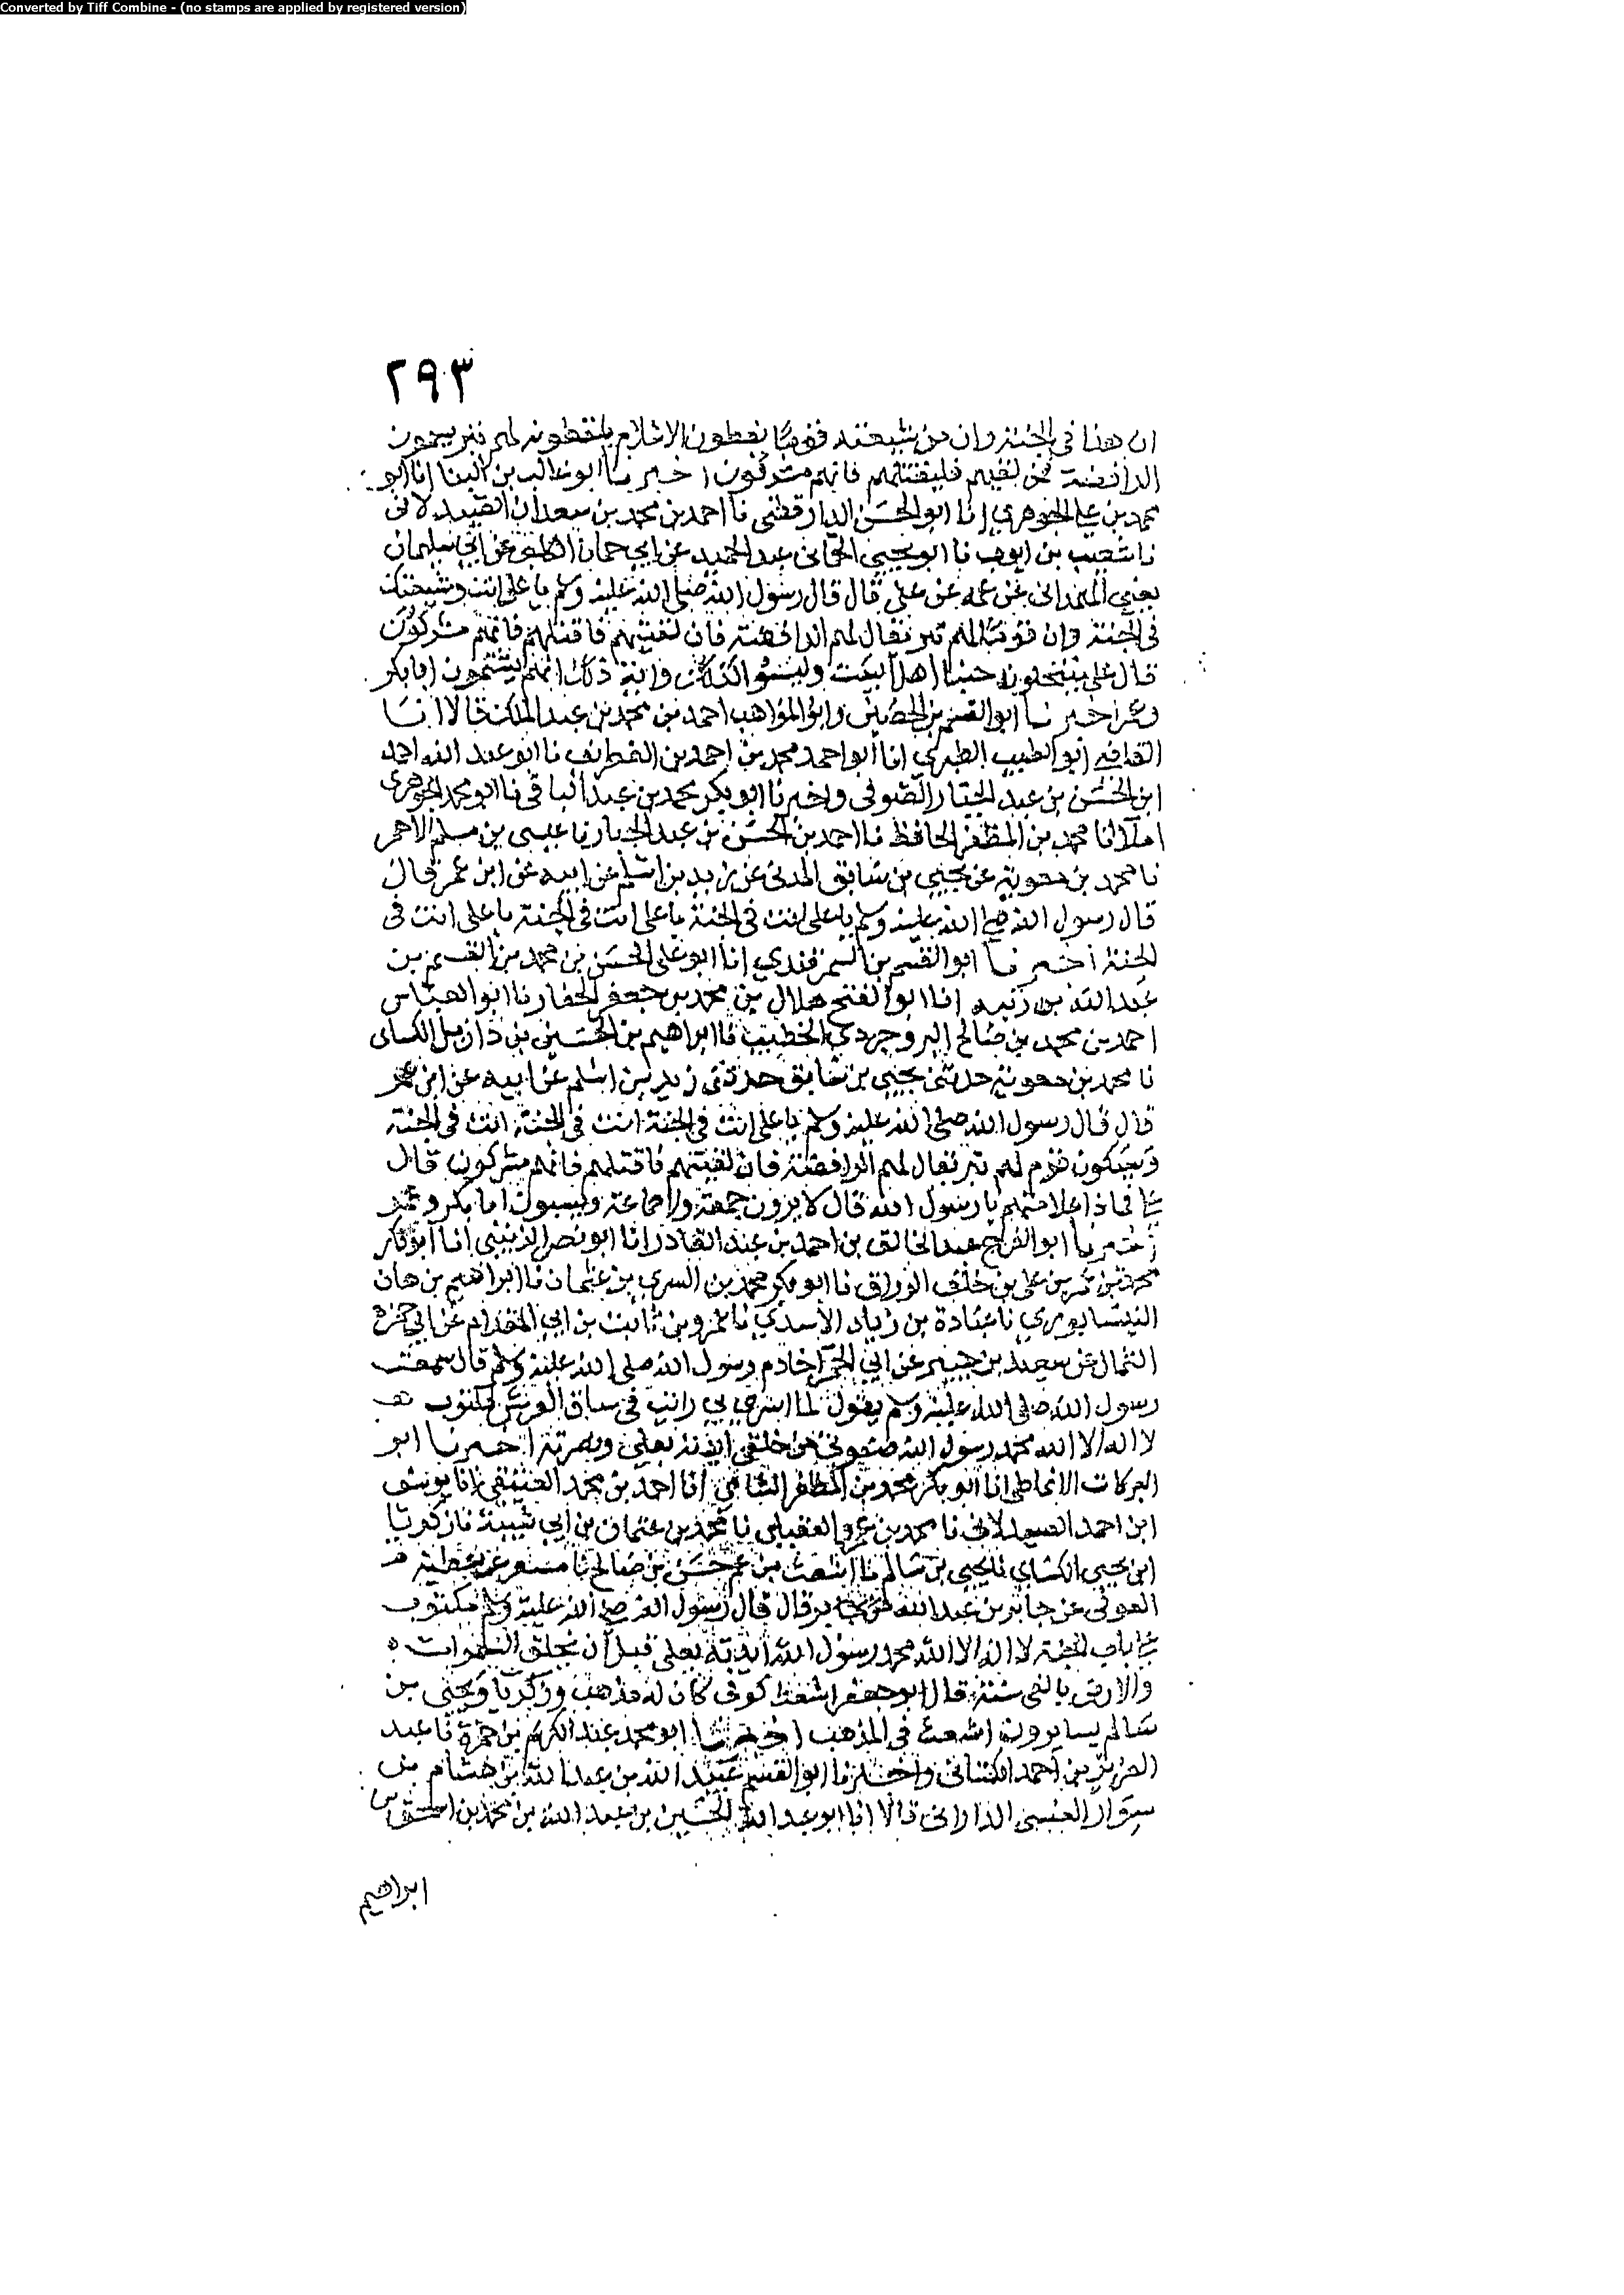 Converted by Tiff Combine - (no stamps are applied by registered version)
٢٩٣
ان هذا في الجنة وان من شيعته قوما يعطون الاسلام يلفظونه لهم نبز يسمون
الرافضة من لقيهم فليقتلهم فانهم مشركون اخبرنا ابو غالب بن البنا انا ابو
محمد بن علي الجوهري انا ابو الحسن الدارقطني نا احمد بن محمد بن سعدان الصيدلاني
نا شعيب بن ايوب نا ابو يحيى الحماني عبد الحميد عن ابي الكلبي عن ابي سليمان
يعني الهمداني عن عمه عن علي قال قال رسول الله صلى الله عليه وسلم يا علي انت وشيعتك
في الجنة وان قوما لهم نبز يقال لهم الرافضة فان لقيتهم فاقتلهم فانهم مشركون
قال علي ينتحلون حبنا اهل البيت وليسوا كذلك واية ذلك انهم يشتمون ابا بكر
وعمر اخبرنا ابو القسم بن الحصين وابو المواهب احمد بن محمد بن عبد الملك قالا انا
القاضي ابو الطيب الطبري انا ابو احمد محمد بن احمد بن الغطريف نا ابو عبد الله احمد
ابن الحسن بن عبد الجبار الصوفي واخبرنا ابو بكر محمد بن عبد الباقي نا ابو محمد الجوهري
املا انا محمد بن المظفر الحافظ نا احمد بن الحسن بن عبد الجبار نا عيسى بن مسلم الاحمر
نا محمد بن معوية عن يحيى بن سابق المدني عن زيد بن اسلم عن ابيه عن ابن عمر قال
قال رسول الله صلى الله عليه وسلم يا علي انت في الجنة يا علي انت في الجنة يا علي انت في
الجنة اخبرنا ابو القسم بن السمرقندي انا ابو علي الحسن بن محمد بن القسم بن
عبد الله بن زنيه انا ابو الفتح هلال بن محمد بن جعفر الحفار نا ابو العباس
احمد بن محمد بن صالح البروجردي الخطيب نا ابراهيم بن الحسين بن ذازيل الكساى
نا محمد بن معوية حدثني يحيى بن سابق حدثني زيد بن اسلم عن ابيه عن ابن عمر
قال قال رسول الله صلى الله عليه وسلم يا علي انت في الجنة انت في الجنة انت في الجنة
وسيكون قوم لهم نبز يقال لهم الرافضة فان لقيتهم فاقتلهم فانهم مشركون قال
علي فماذا علامتهم يا رسول الله قال لا يرون جمعة ولا جماعة ويسبون ابا بكر وعمر
اخبرنا ابو الفرج عبد الخالق بن احمد بن عبد القادر انا ابو نصر الزينبي انا ابو بكر
محمد بن عمر بن علي بن خلف الوراق نا ابو بكر محمد بن السري بن عثمان نا ابراهيم بن هان
النيسابوري نا عبادة بن زياد الاسدي نا عمرو بن ثابت بن ابي المقدام عن ابي حمزة
الثمالي عن سعيد بن جبير عن ابي الحمرا خادم رسول الله صلى الله عليه وسلم قال سمعت
رسول الله صلى الله عليه وسلم يقول لما اسري بي رايت في ساق العرش مكتوب
لا اله الا الله محمد رسول الله صفوتي من خلقي ايدته بعلي ونصرته اخبرنا ابو
البركات الانماطي انا ابو بكر محمد بن المظفر الشامي انا احمد بن محمد العتيقي انا يوسف
ابن احمد الصيدلاني نا محمد بن عمرو العقيلي نا محمد بن عثمان بن ابي شيبة نا زكريا
ابن يحيى الكساي نا يحيى بن سالم نا اشعث بن عم حسن بن صالح نا مسعر عن عطية
العوفي عن جابر بن عبد الله قال قال رسول الله صلى الله عليه وسلم مكتوب
على باب الجنة لا اله الا الله محمد رسول الله ايدته بعلي قبل ان تخلق السموات
والارض بالفي سنة قال ابو جعفر اشعث كوفي كان له مذهب وزكريا ويحيى بن
سالم يسايرون اشعث في المذهب اخبرنا ابو محمد عبد الكريم بن حمزة نا عبد
العزيز بن احمد الكتاني واخبرنا ابو القسم عبيد الله بن عبد الله بن هشام بن
سوار العنسي الداراني قالا انا ابو عبد الله الحسين بن عبد الله بن محمد بن اسحق بن
ابراهيم